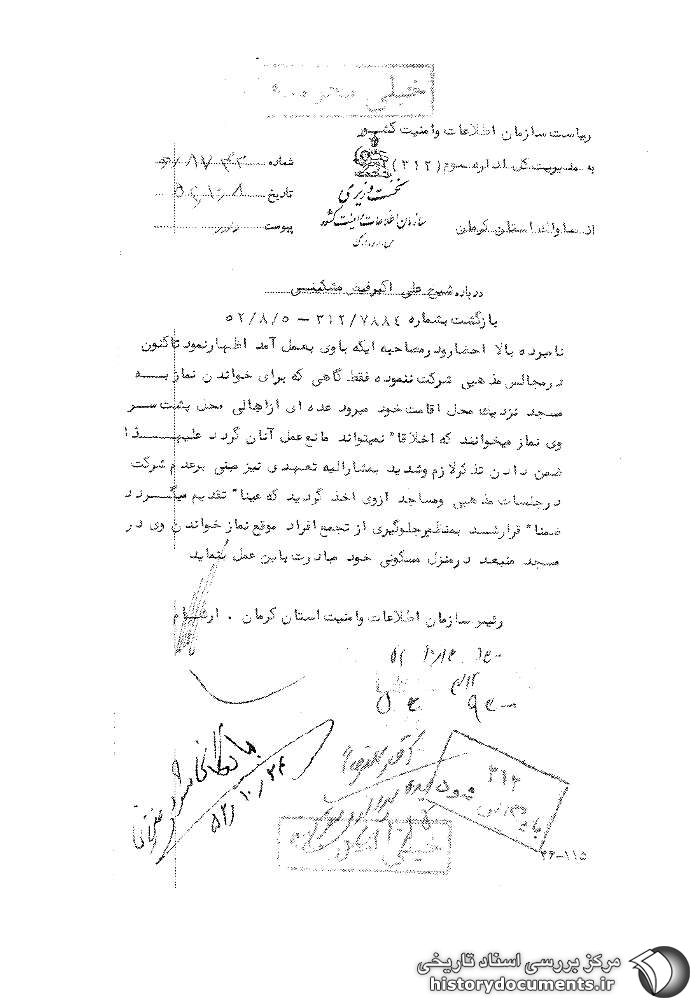 خیلی محرمانه
ریاست سازمان اطلاعات وامنیت کشور
به مدیریت کل اداره سوم (۳۱۲)
شماره
نخست وزیری
تاریخ
سازمان اطلاعات و امنیت کشور
از ساواک استان کرمان
پیوست دارد
درباره شیخ علی اکبر فیض مشکینی
بازگشت بشماره ۳۱۲/۷۸۸٤ – ۵۲/۸/۵
نامبرده بالا احضار ودر مصاحبه ایکه باوی بعمل آمد اظهار نمود تاکنون
در مجالس مذهبی شرکت ننموده فقط گاهی که برای خواندن نماز بـــه
مسجد نزدیک محل اقامت خود میرود عده ای از اهالی محل پشت سر
وی نماز میخوانند که اخلاقا" نمیتواند مانع عمل آنان گردد علیهــذا
ضمن دادن تذکر لازم وشدید بمشارالیه تعهدی نیز مبنی برعدم شرکت
درجلسات مذهبی ومساجد ازوی اخذ گردید که عینا" تقدیم میگـــردد
ضمنا" قرارشـد بمنظور جلوگیری از تجمع افراد موقع نماز خواندن وی در
مسجد منبعد درمنزل مسکونی خود مبادرت باین عمل بنماید
رئیس سازمان اطلاعات وامنیت استان کرمان . ارشـــام
۳۱۲
بایگانی شود
۵۲/۱۰/۲۴
۳۱۲
خیلی محرمانه
۳۶-۱۱۵
مرکز بررسی اسناد تاریخی
historydocuments.ir